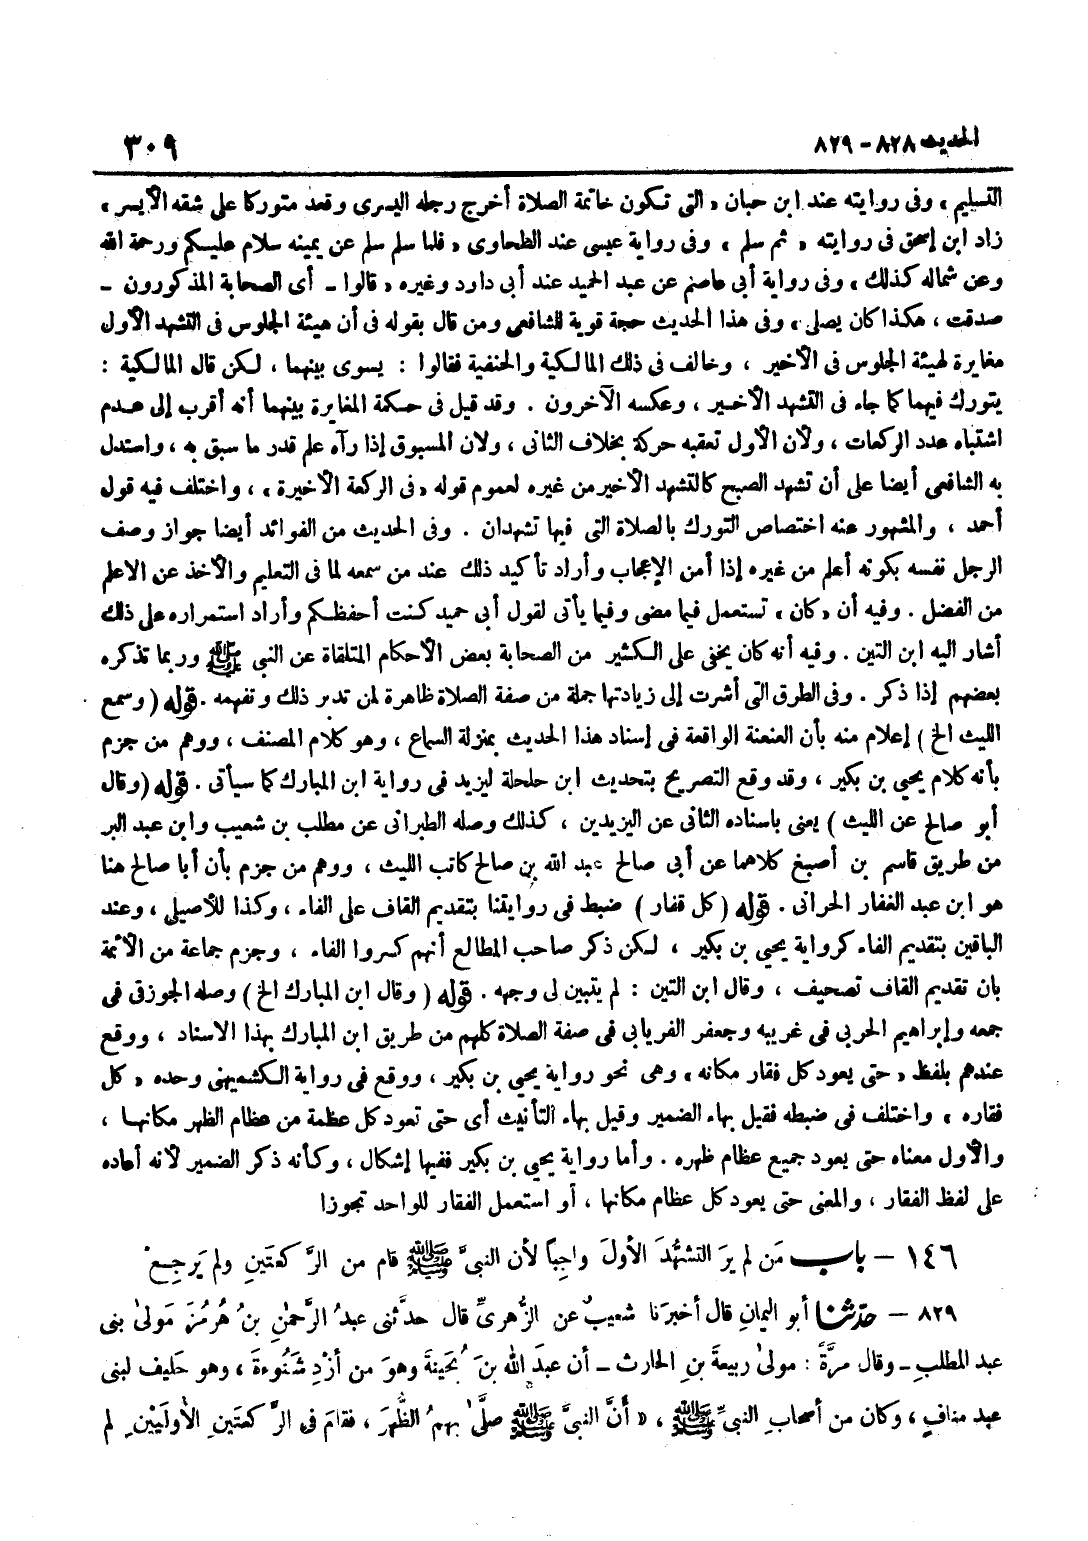 الحديث ٨٢٨ - ٨٢٩
٣٠٩
التسليم » وفى روايته عند ابن حبان « التى تكون خاتمة الصلاة أخرج رجله اليسرى وقعد متوركا على شقه الأيسر »
زاد ابن إسحق فى روايته « ثم سلم » وفى رواية عيسى عند الطحاوى « فلما سلم سلم عن يمينه سلام عليكم ورحمة الله
وعن شماله كذلك » وفى رواية أبى عاصم عن عبد الحميد عند أبى دارد وغيره « قالوا - أى الصحابة المذكورون -
صدقت ، هكذا كان يصلى » وفى هذا الحديث حجة قوية للشافعى ومن قال بقوله فى أن هيئة الجلوس فى التشهد الأول
مغايرة لهيئة الجلوس فى الأخير ، وخالف فى ذلك المالكية والحنفية فقالوا : يسوى بينهما ، لكن قال المالكية :
يتورك فيهما كما جاء فى التشهد الأخير ، وعكسه الآخرون . وقد قيل فى حكمة المغايرة بينهما أنه أقرب إلى عدم
اشتباه عدد الركعات ، ولأن الأول تعقبه حركة بخلاف الثانى ، ولان المسبوق إذا رآه علم قدر ما سبق به ، واستدل
به الشافعى أيضا على أن تشهد الصبح كالتشهد الأخير من غيره لعموم قوله « فى الركعة الأخيرة » ، واختلف فيه قول
أحمد ، والمشهور عنه اختصاص التورك بالصلاة التى فيها تشهدان . وفى الحديث من الفوائد أيضا جواز وصف
الرجل نفسه بكونه أعلم من غيره إذا أمن الإعجاب وأراد تأكيد ذلك عند من سمعه لما فى التعليم والأخذ عن الاعلم
من الفضل . وفيه أن « كان » تستعمل فيما مضى وفيما يأتى لقول أبى حميد كنت أحفظكم وأراد استمراره على ذلك
أشار اليه ابن التين . وفيه أنه كان يخفى على الكثير من الصحابة بعض الأحكام المتلقاة عن النبى ﷺ وربما تذكره
بعضهم إذا ذكر . وفى الطرق التى أشرت إلى زيادتها جملة من صفة الصلاة ظاهرة لمن تدبر ذلك وتفهمه . قوله ( وسمع
الليث الخ ) إعلام منه بأن العنعنة الواقعة فى إسناد هذا الحديث بمنزلة السماع ، وهو كلام المصنف ، ووهم من جزم
بأنه كلام يحيى بن بكير ، وقد وقع التصريح بتحديث ابن حلحلة ليزيد فى رواية ابن المبارك كما سيأتى . قوله ( وقال
أبو صالح عن الليث ) يعنى باسناده الثانى عن اليزيدين ، كذلك وصله الطبرانى عن مطلب بن شعيب وابن عبد البر
من طريق قاسم بن أصبغ كلاهما عن أبى صالح عبد الله بن صالح كاتب الليث ، ووهم من جزم بأن أبا صالح هنا
هو ابن عبد الغفار الحرانى . قوله ( كل قفار ) ضبط فى روايتنا بتقديم القاف على الفاء ، وكذا للأصيلى ، وعند
الباقين بتقديم الفاء كرواية يحيى بن بكير ، لكن ذكر صاحب المطالع أنهم كسروا الفاء ، وجزم جماعة من الأئمة
بان تقديم القاف تصحيف ، وقال ابن التين : لم يتبين لى وجهه . قوله ( وقال ابن المبارك الخ ) وصله الجوزقى فى
جمعه وإبراهيم الحربى فى غريبه وجعفر الفريابى فى صفة الصلاة كلهم من طريق ابن المبارك بهذا الاسناد ، ووقع
عندهم بلفظ « حتى يعود كل فقار مكانه » وهى نحو رواية يحيى بن بكير ، ووقع فى رواية الكشميهنى وحده « كل
فقاره » واختلف فى ضبطه فقيل بهاء الضمير وقيل بهاء التأنيث أى حتى تعود كل عظمة من عظام الظهر مكانها ،
والأول معناه حتى يعود جميع عظام ظهره . وأما رواية يحيى بن بكير ففيها إشكال ، وكأنه ذكر الضمير لأنه أعاده
على لفظ الفقار ، والمعنى حتى يعود كل عظام مكانها ، أو استعمل الفقار للواحد تجوزا
١٤٦ - باب مَن لم يرَ التشهُّدَ الأولَ واجِباً لأن النبىَّ ﷺ قام من الرَّكعتَينِ ولم يَرجِعْ
٨٢٩ - حدّثنا أبو اليمانِ قال أخبرَنا شعيبٌ عن الزُّهرىِّ قال حدثنى عبدُ الرَّحمٰنِ بنُ هُرمُزَ مَولىٰ بنى
عبد المطلبِ - وقال مرَّةً : مولىٰ ربيعةَ بنِ الحارث - أن عبدَ الله بنَ بُحَينةَ وهوَ من أزْدِ شَنُوءةَ ، وهو حَليف لبنى
عبد منافٍ ، وكان من أصحابِ النبىِّ ﷺ ، « أنَّ النبىَّ ﷺ صلَّىٰ بهمُ الظُّهرَ ، فقامَ فى الرَّكعتَينِ الأولَيَيْنِ لم